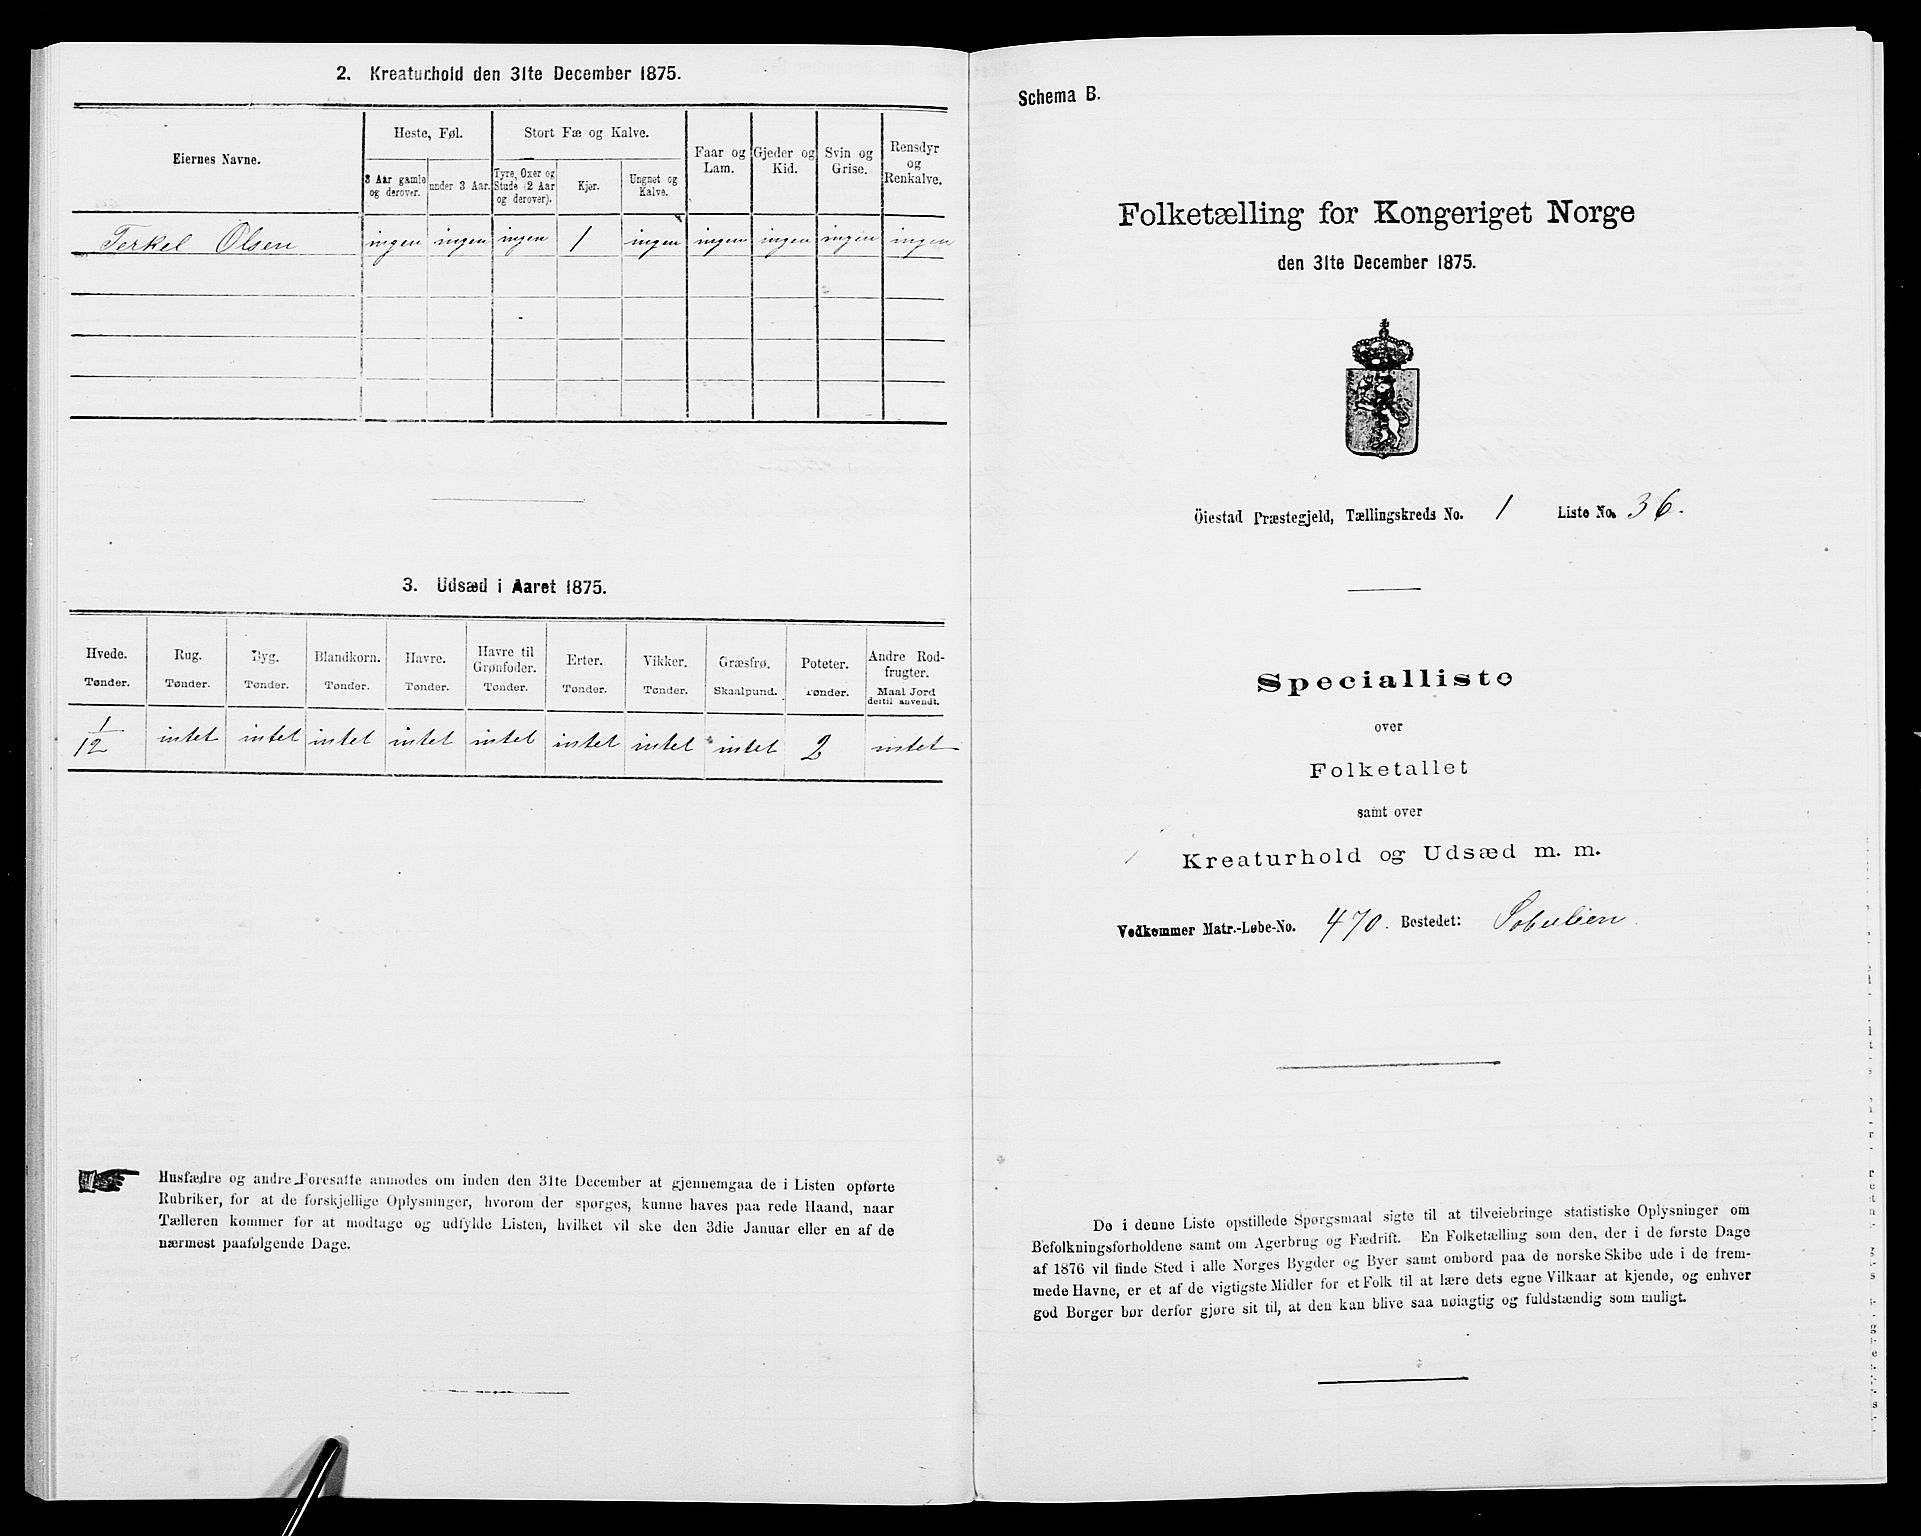 2. Kreaturhold den 31te December 1875.
Eiernes Navne.
Heste, Føl.
Stort Fæ og Kalve.
Faar og Lam.
Gjeder og Kid.
Svin og Grise.
Rensdyr og Renkalve.
3 Aar gamle og derover.
under 3 Aar.
Tyre, Oxer og Stude (2 Aar og derover).
Kjør.
Ungnøt og Kalve.
Terkel Olsen ingen ingen ingen 1 ingen ingen ingen ingen ingen
3. Udsæd i Aaret 1875.
Hvede. Rug. Byg. Blandkorn. Havre. Havre til Grønfoder. Erter. Vikker. Græsfrø. Poteter. Andre Rodfrugter.
Tønder. Tønder. Tønder. Tønder. Tønder. Tønder. Tønder. Tønder. Skaalpund. Tønder. Maal Jord dertil anvendt.
1/12 intet intet intet intet intet intet intet intet 2 intet
Husfædre og andre Foresatte anmodes om inden den 31te December at gjennemgaa de i Listen opførte
Rubriker, for at de forskjellige Oplysninger, hvorom der spørges, kunne haves paa rede Haand, naar
Tælleren kommer for at modtage og udfylde Listen, hvilket vil ske den 3die Januar eller en af de
nærmest paafølgende Dage.
Schema B.
Folketælling for Kongeriget Norge
den 31te December 1875.
Öiestad Præstegjeld, Tællingskreds No. 1 Liste No. 36.
Specialliste
over
Folketallet
samt over
Kreaturhold og Udsæd m. m.
Vedkommer Matr.-Løbe-No. 470. Bostedet:
De i denne Liste opstillede Spørgsmaal sigte til at tilveiebringe statistiske Oplysninger om
Befolkningsforholdene samt om Agerbrug og Fædrift. En Folketælling som den, der i de første Dage
af 1876 vil finde Sted i alle Norges Bygder og Byer samt ombord paa de norske Skibe ude i de frem-
mede Havne, er et af de vigtigste Midler for et Folk til at lære dets egne Vilkaar at kjende, og enhver
god Borger bør derfor gjøre sit til, at den kan blive saa nøiagtig og fuldstændig som muligt.